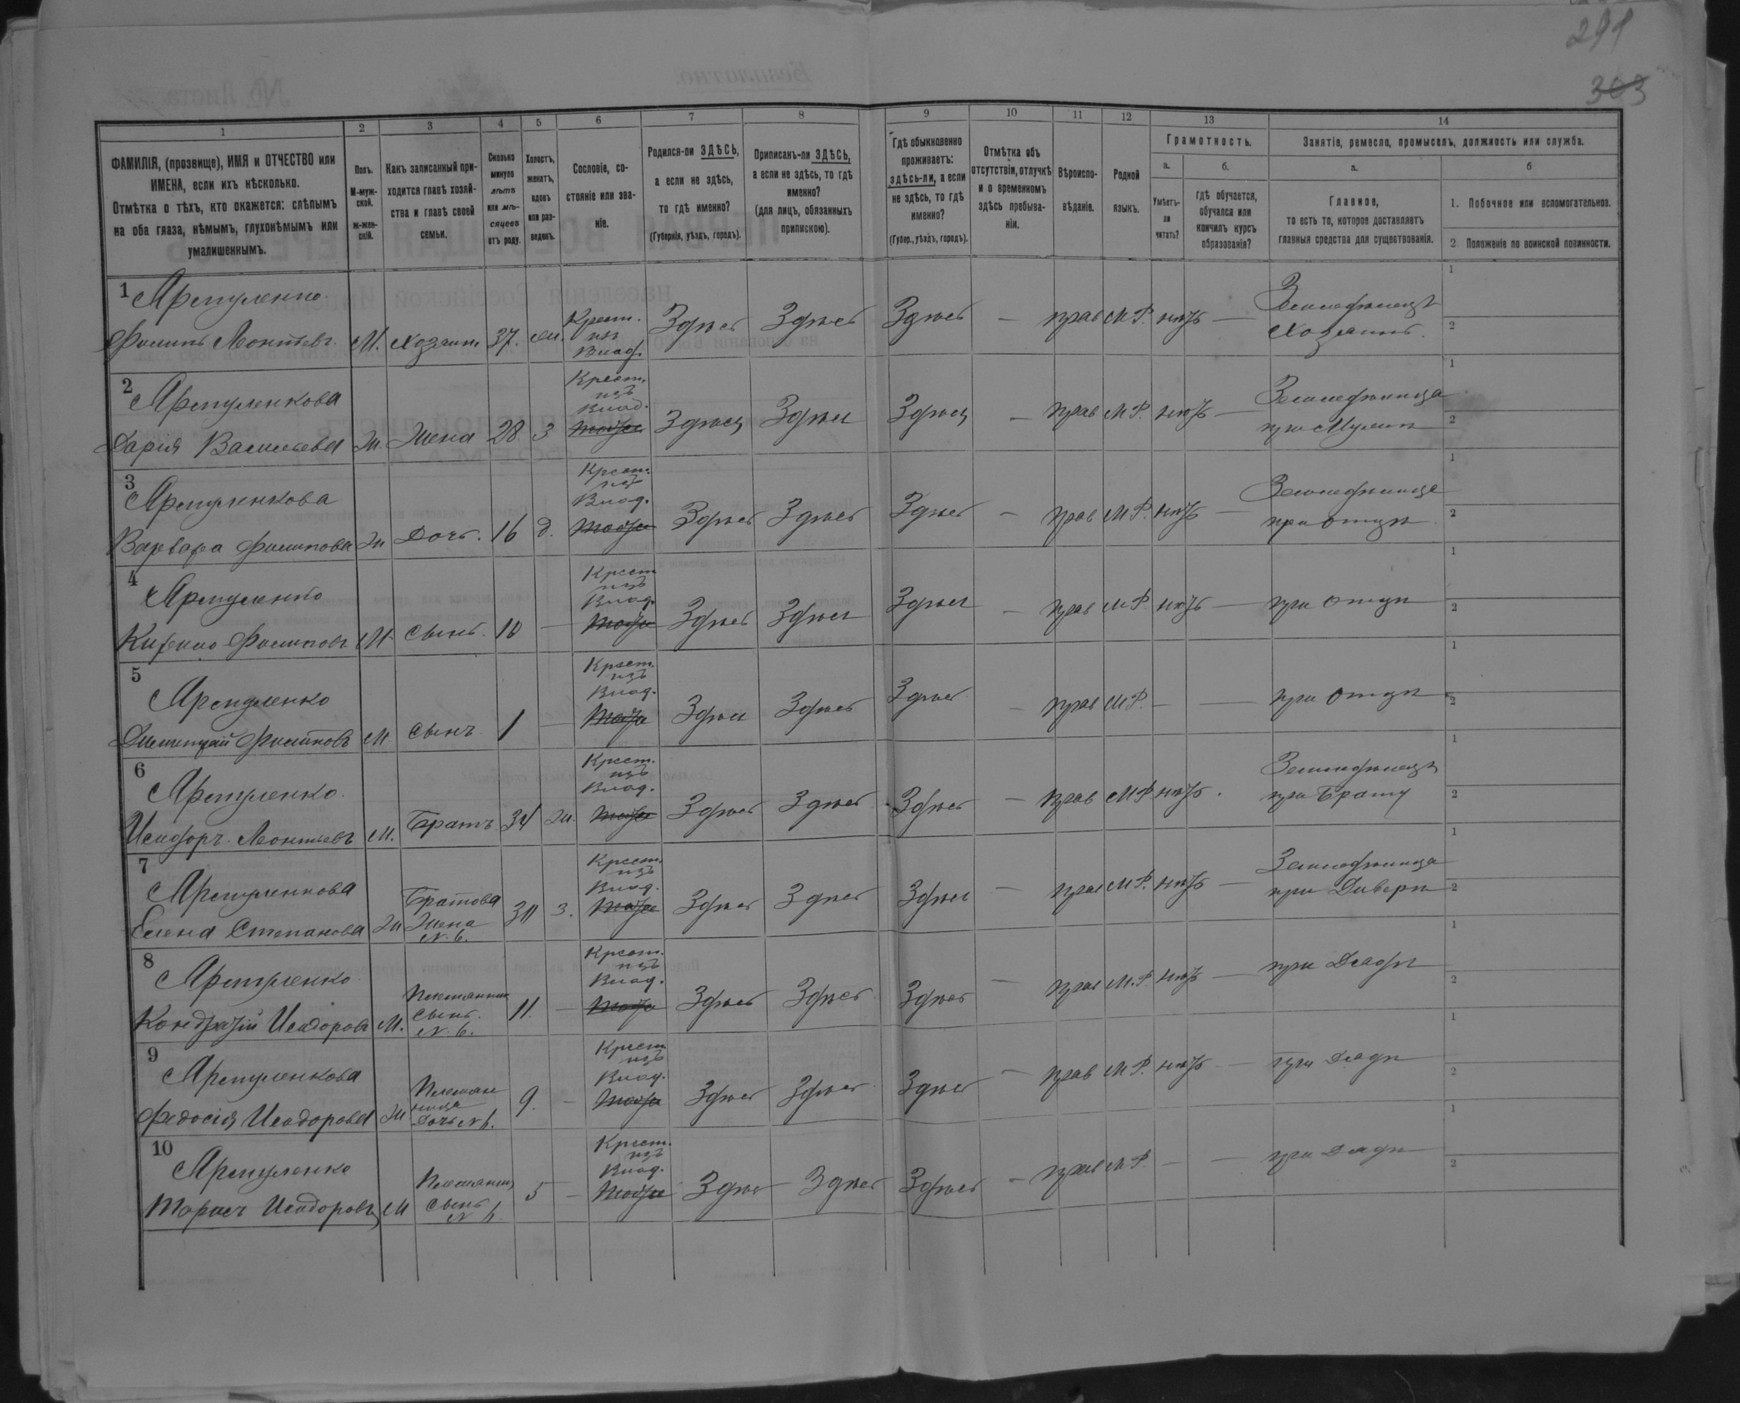 291
303
1
2
3
4
5
6
7
8
9
10
11
12
13
14
ФАМИЛІЯ, (прозвище), ИМЯ и ОТЧЕСТВО или ИМЕНА, если ихъ нѣсколько.
Отмѣтка о тѣхъ, кто окажется: слѣпымъ на оба глаза, нѣмымъ, глухонѣмымъ или умалишеннымъ.
Полъ.
М-мужской.
Ж-женскій.
Какъ записанный приходится главѣ хозяйства и главѣ своей семьи.
Сколько минуло лѣтъ или мѣсяцевъ отъ роду.
Холостъ, женатъ, вдовъ или разведенъ.
Сословіе, состояніе или званіе.
Родился-ли ЗДѢСЬ, а если не здѣсь, то гдѣ именно?
(Губернія, уѣздъ, городъ).
Приписанъ-ли ЗДѢСЬ, а если не здѣсь, то гдѣ именно?
(для лицъ, обязанныхъ припискою).
Гдѣ обыкновенно проживаетъ: здѣсь-ли, а если не здѣсь, то гдѣ именно?
(Губер., уѣздъ, городъ).
Отмѣтка объ отсутствіи, отлучкѣ и о временномъ здѣсь пребываніи.
Вѣроисповѣданіе.
Родной языкъ.
Грамотность.
а.
Умѣетъ-ли читать?
б.
Гдѣ обучается, обучался или кончилъ курсъ образованія?
Занятіе, ремесло, промыселъ, должность или служба.
а.
Главное,
то есть то, которое доставляетъ главныя средства для существованія.
б
1. Побочное или вспомогательное.
2 Положеніе по воинской повинности.
1
Филипъ Леонтьевъ М. Хозяинъ 37. Крест. изъ Влад. Здѣсь Здѣсь Здѣсь — прав М.Р. нѣтъ — Земледѣлецъ Хозяинъ.
2
Дарія Васильева Ж. Жена 28 З Крест. изъ Влад. Здѣсь Здѣсь Здѣсь — прав М.Р. нѣтъ — Земледѣлица при Мужѣ
3
Варвара Филипова Ж Дочь. 16 д. Крест. изъ Влад. Здѣсь Здѣсь Здѣсь — прав М.Р. нѣтъ — Земледѣлица при отцѣ
4
Кирило Филиповъ М Сынъ. 10 — Крест. изъ Влад. Здѣсь Здѣсь Здѣсь — прав М.Р. нѣтъ — при отцѣ
5
Димитрій Филиповъ М Сынъ 1 — Крест. изъ Влад. Здѣсь Здѣсь Здѣсь — прав М.Р. — — при отцѣ
6
Исидоръ Леонтьевъ М. Братъ 34 ж. Крест. изъ Влад. Здѣсь Здѣсь Здѣсь — прав М.Р. нѣтъ. Земледѣлецъ при Брату
7
Елена Степанова Ж Братова Жена N. 6. З. Крест. изъ Влад. Здѣсь Здѣсь Здѣсь — прав М.Р. нѣтъ — Земледѣлица при Диверѣ
8
Кондратій Исидоровъ М. Племянник Сынъ. N. 6. 11. — Крест. изъ Влад. Здѣсь Здѣсь Здѣсь — прав М.Р. нѣтъ — при Дядѣ
9
Федосія Исидорова Ж Дочь N 6. 9. — Крест. изъ Влад. Здѣсь Здѣсь Здѣсь — прав М.Р. нѣтъ — при Дядѣ
10
Тарасъ Исидоровъ М Племянник Сынъ N 6. 5 — Крест. изъ Влад. Здѣсь Здѣсь Здѣсь — прав М.Р. — — при Дядѣ